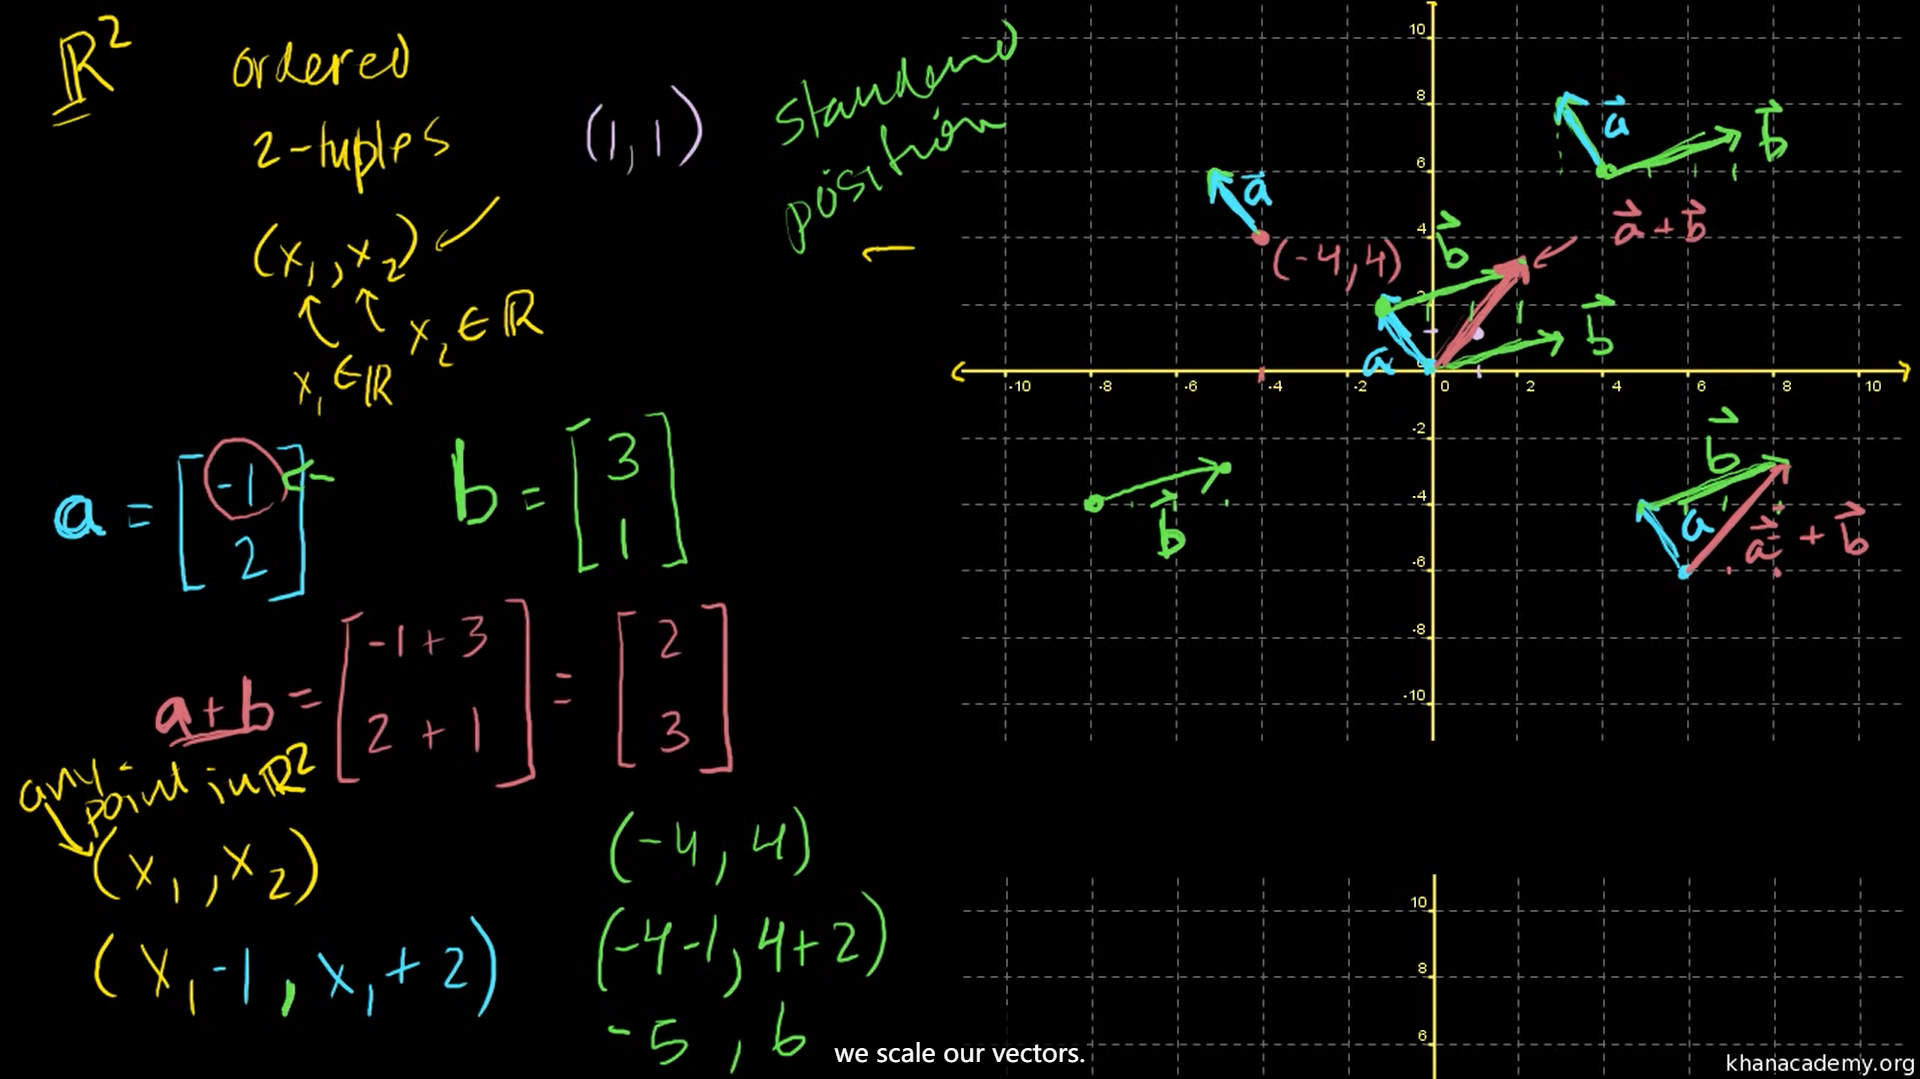 ℝ²
ordered
2-tuples
(1,1)
standard
position
(x₁, x₂)
x₁ ∈ ℝ
x₂ ∈ ℝ
a = [-1 2]
b = [3 1]
a + b = [-1 + 3 2 + 1] = [2 3]
any point in ℝ²
(x₁, x₂)
(x₁ - 1, x₁ + 2)
(-4, 4)
(-4 - 1, 4 + 2)
-5, 6
10
8
6
4
2
0
-2
-4
-6
-8
-10
-10 -8 -6 -4 -2 0 2 4 6 8 10
a⃗
b⃗
a⃗
(-4,4)
b⃗
a⃗ + b⃗
a
b⃗
b⃗
b⃗
a
a⃗ + b⃗
10
8
6
we scale our vectors.
khanacademy.org